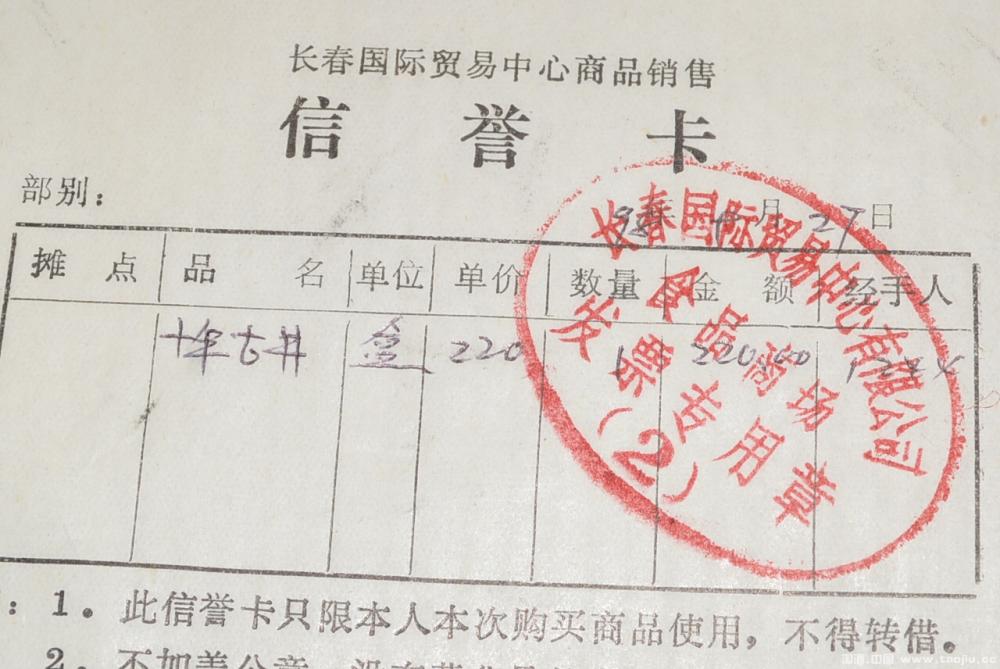 长春国际贸易中心商品销售
信誉卡
部别：
月27日
摊点 品名 单位 单价 数量 金额 经手人
十年古井 盒 220 1 220.00
长春国际贸易中心有限公司
食品商场
发票专用章
(2)
：1。此信誉卡只限本人本次购买商品使用，不得转借。
2。不加盖公章
www.taojiu.cc